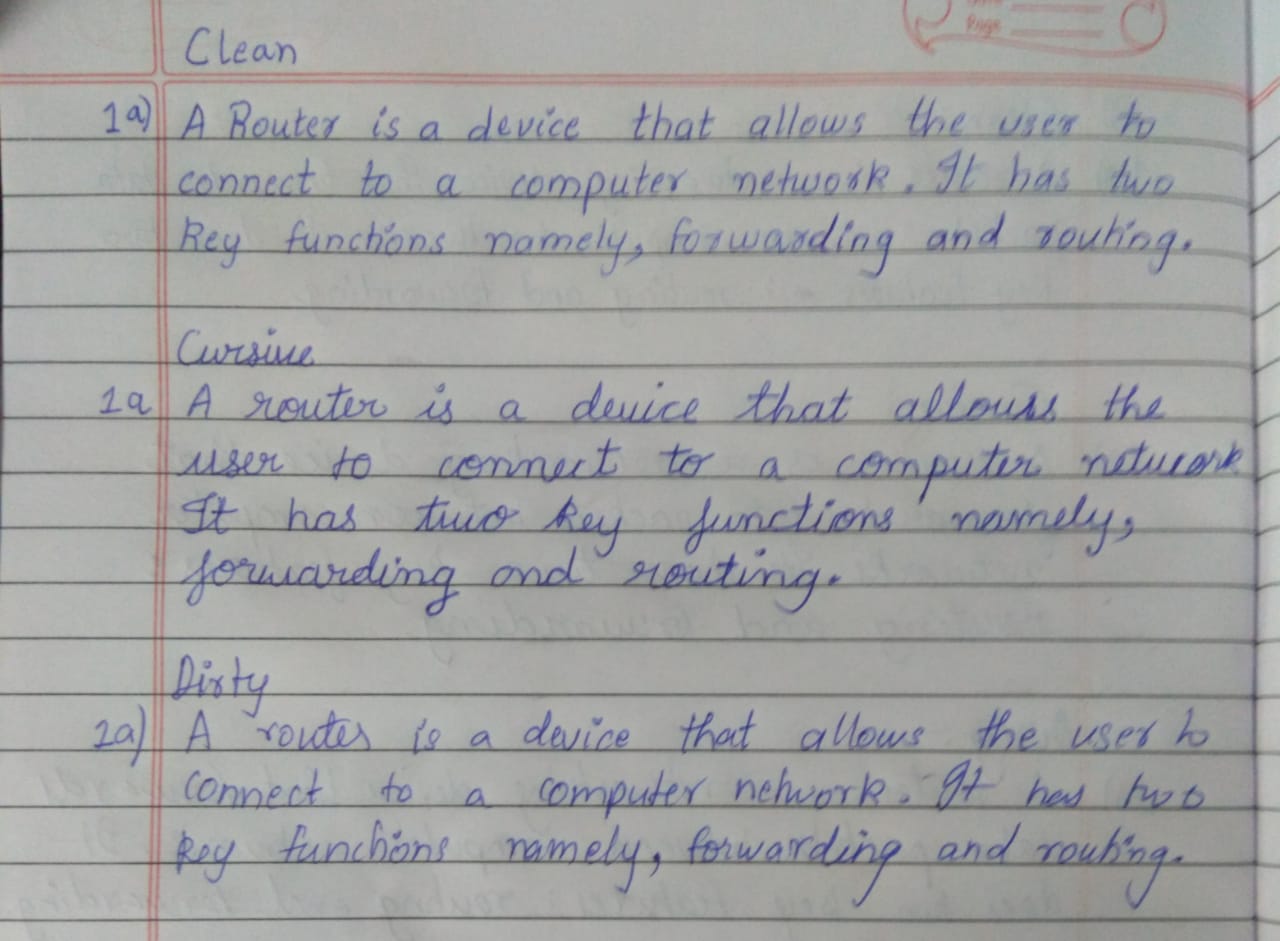 Page
Clean
1a) A Router is a device that allows the user to
connect to a computer network. It has two
Key functions namely, forwarding and routing.
Cursive
1a A router is a device that allows the
user to connect to a computer network
It has two key functions namely,
forwarding and routing.
Dirty
2a) A router is a device that allows the user to
connect to a computer network. It has two
key functions namely, forwarding and routing.